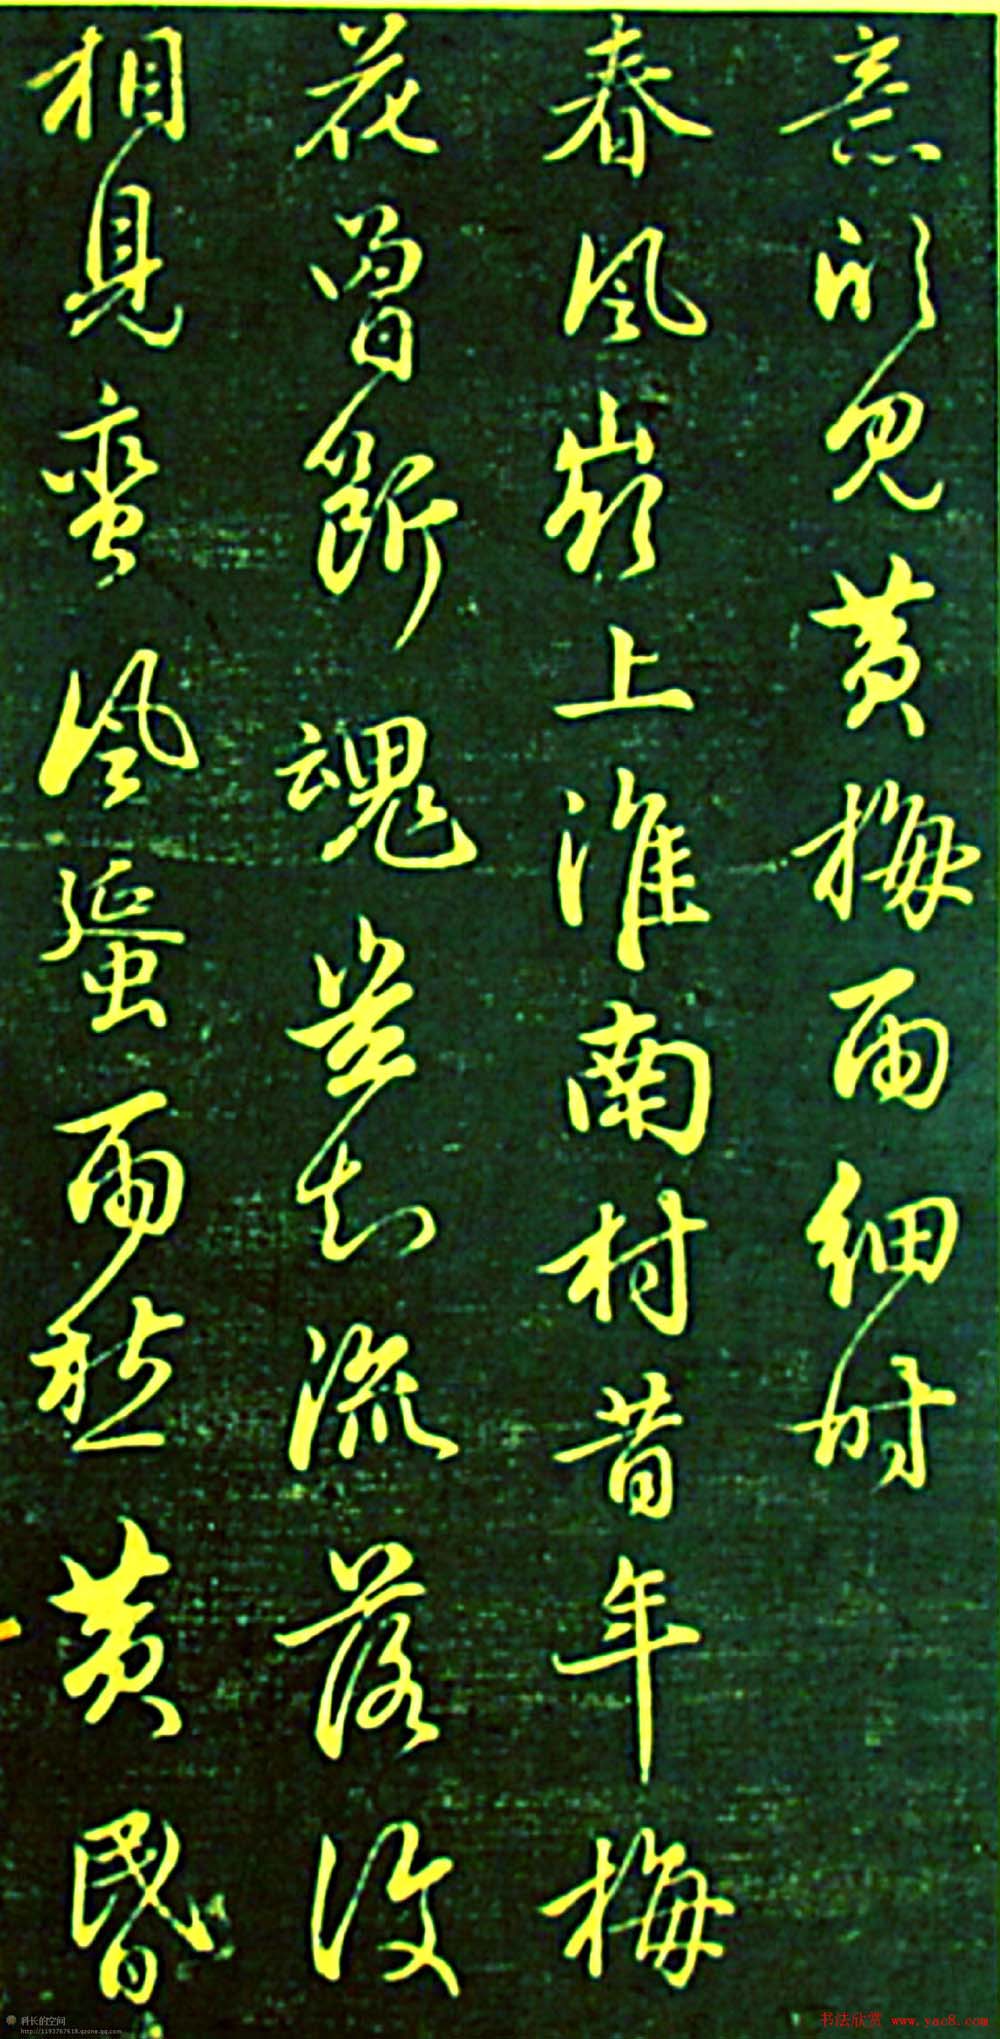 意欲見黄梅雨細時
春風嶺上淮南村昔年梅
花曾斷魂豈知流落復
相見蠻風蜑雨愁黄昏
科长的空间
http://1193767618.qzone.qq.com
书法欣赏 www.yac8.com